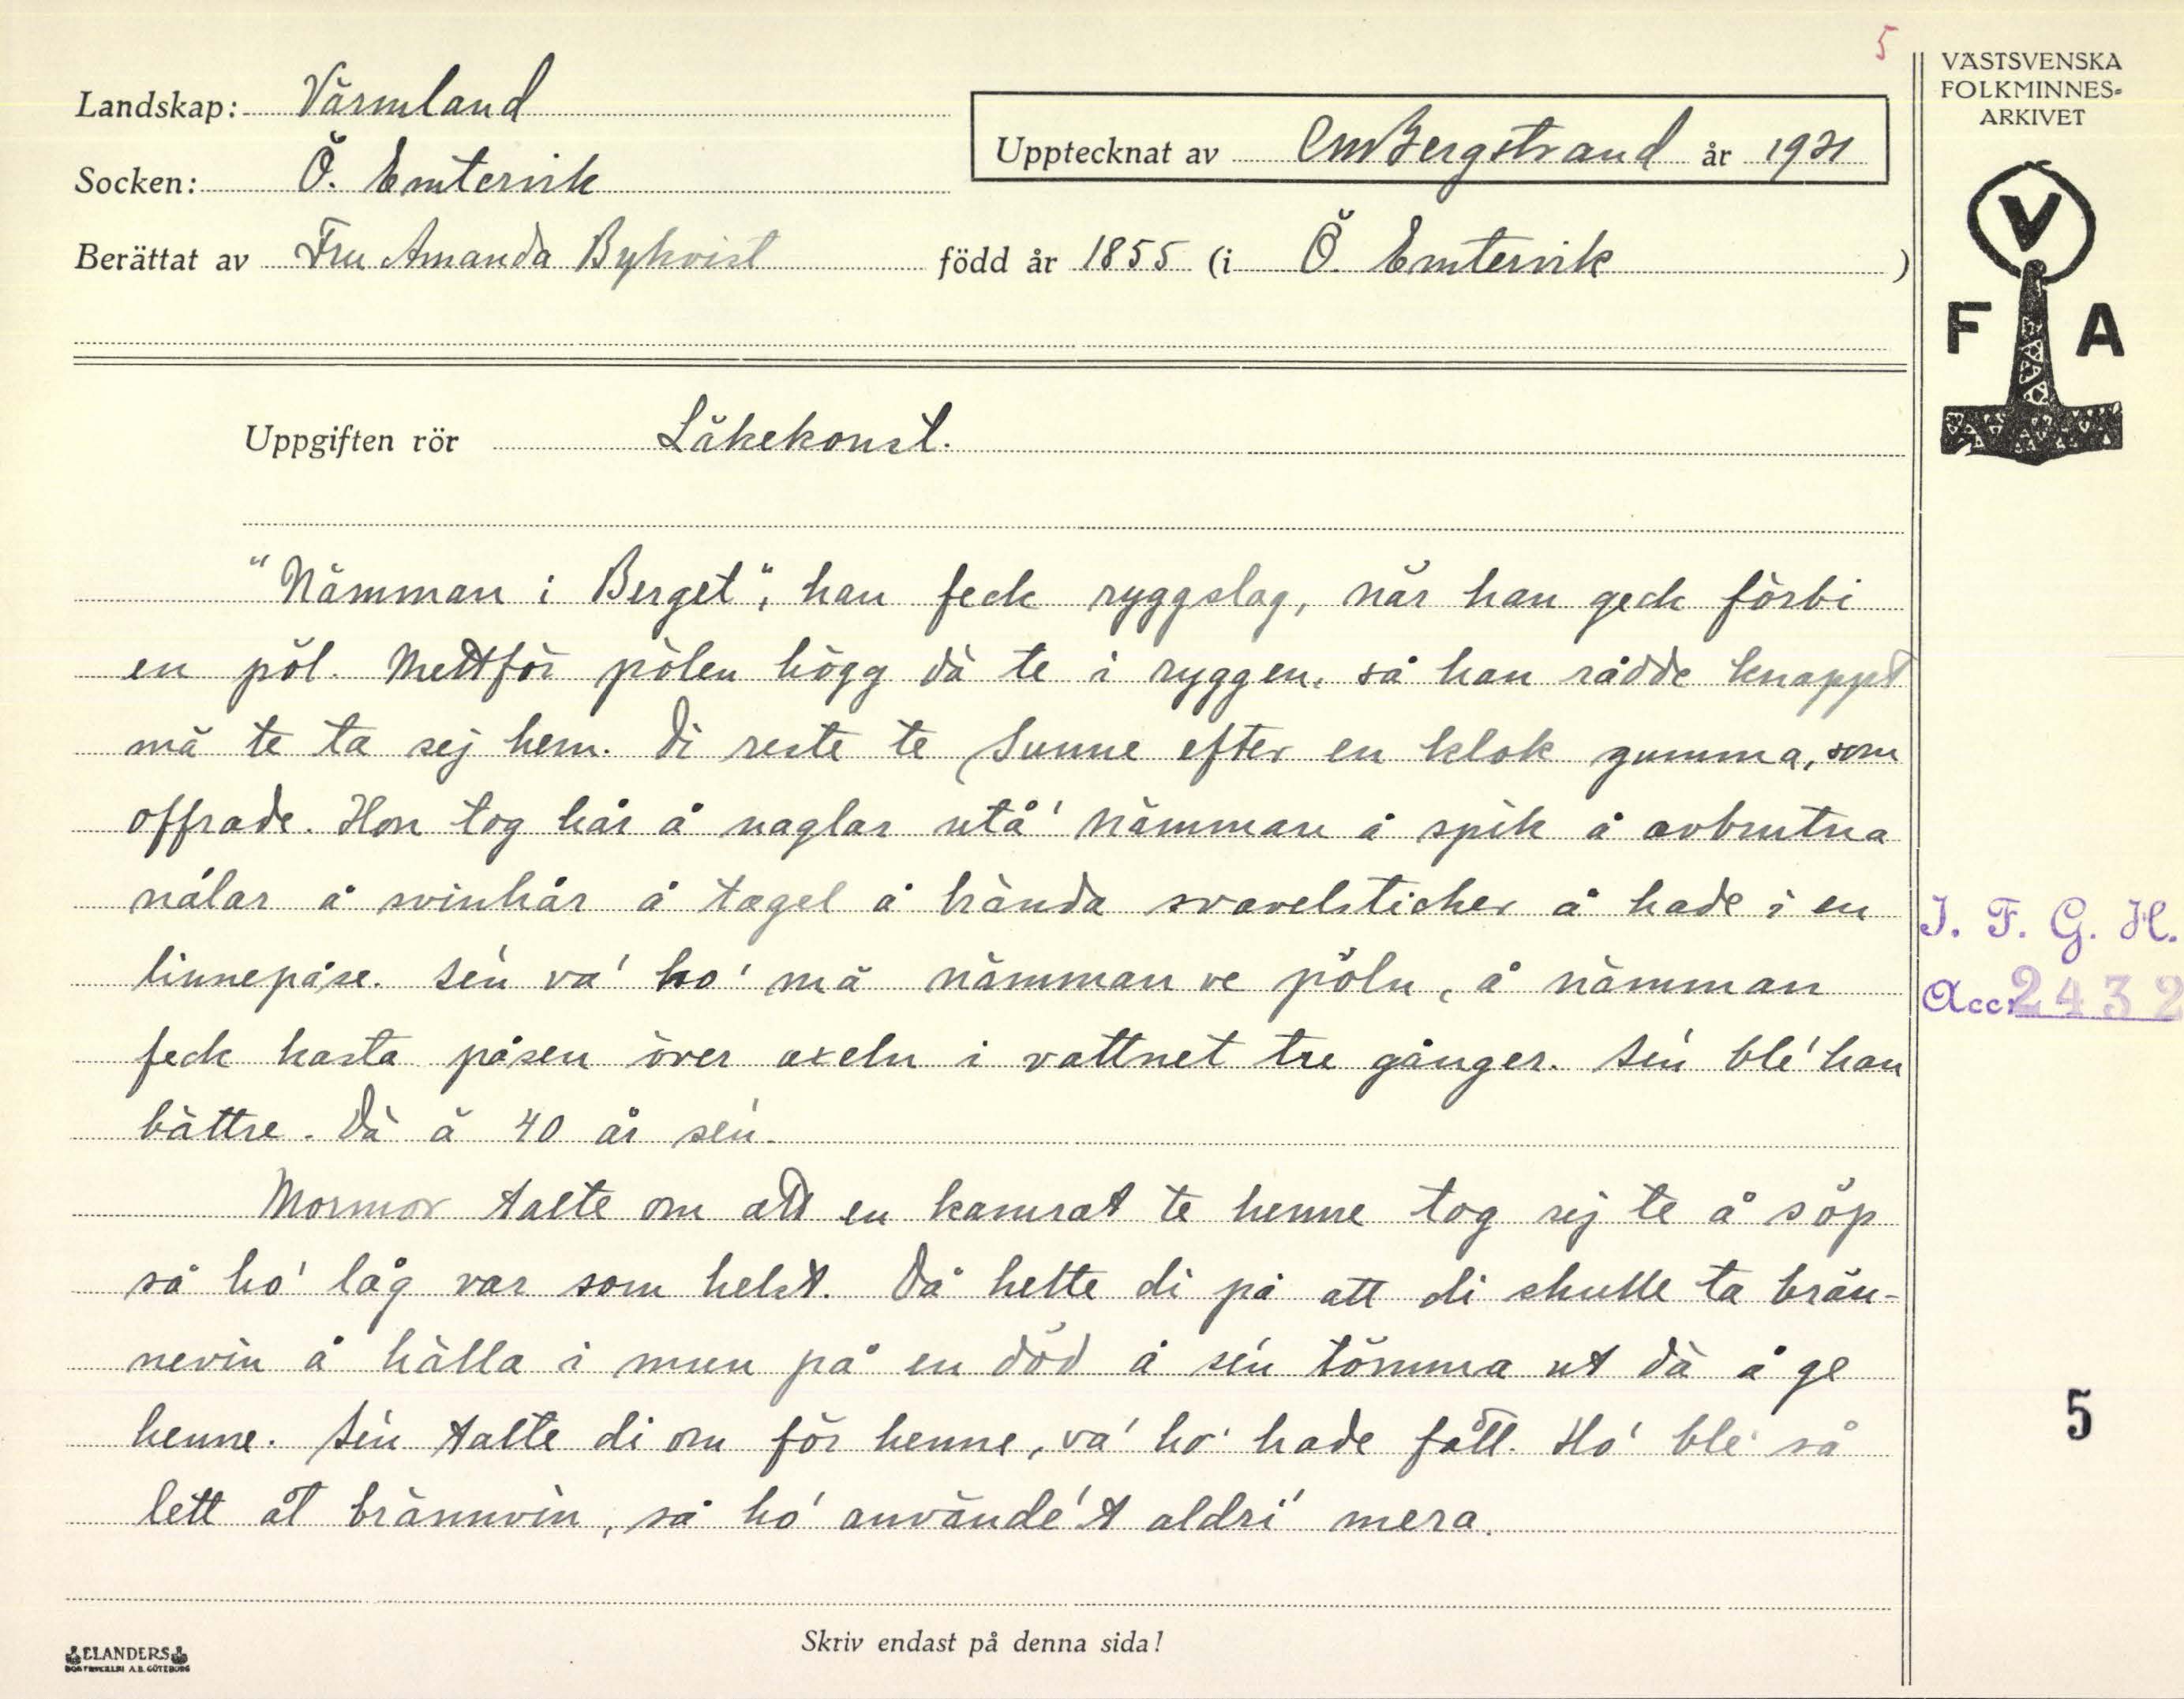 5
VÄSTSVENSKA
FOLKMINNES-
ARKIVET
Landskap: Värmland
Upptecknat av CmBergstrand år 1931
Socken: Ö. Emtervik
Berättat av Fru Amanda Bykvist född år 1855 (i Ö. Emtervik )
V
F A
Uppgiften rör Läkekonst.
"Nämman i Berget", han feck ryggslag, när han geck förbi
en pöl. Mettför pölen högg dä te i ryggen, så han rådde knappt
mä te ta sej hem. Di reste te Sunne efter en klok gumma, som
offrade. Hon tog hår å naglar utå' nämman å spik å avbrutna
nålar å svinhår å tagel å brända svavelstickor å hade i en
linnepåse. Sén va' ho' mä nämman ve pöln, å nämman
feck kasta påsen över axeln i vattnet tre gånger. Sén blé' han
bättre. Dä ä 40 år sén.
Mormor talte om att en kamrat te henne tog sej te å söp
så ho' låg var som helst. Då hette di på att di skulle ta brän-
nevin å hälla i mun på en död å sén tömma ut dä å ge
henne. Sén talte di om för henne, va' ho' hade fått. Ho' ble' så
lett åt brännvin, så ho' använde't aldri' mera.
J. F. G. H.
Acc. 2432
5
Skriv endast på denna sida!
ELANDERS
BOKTRYCKERI A.B. GÖTEBORG